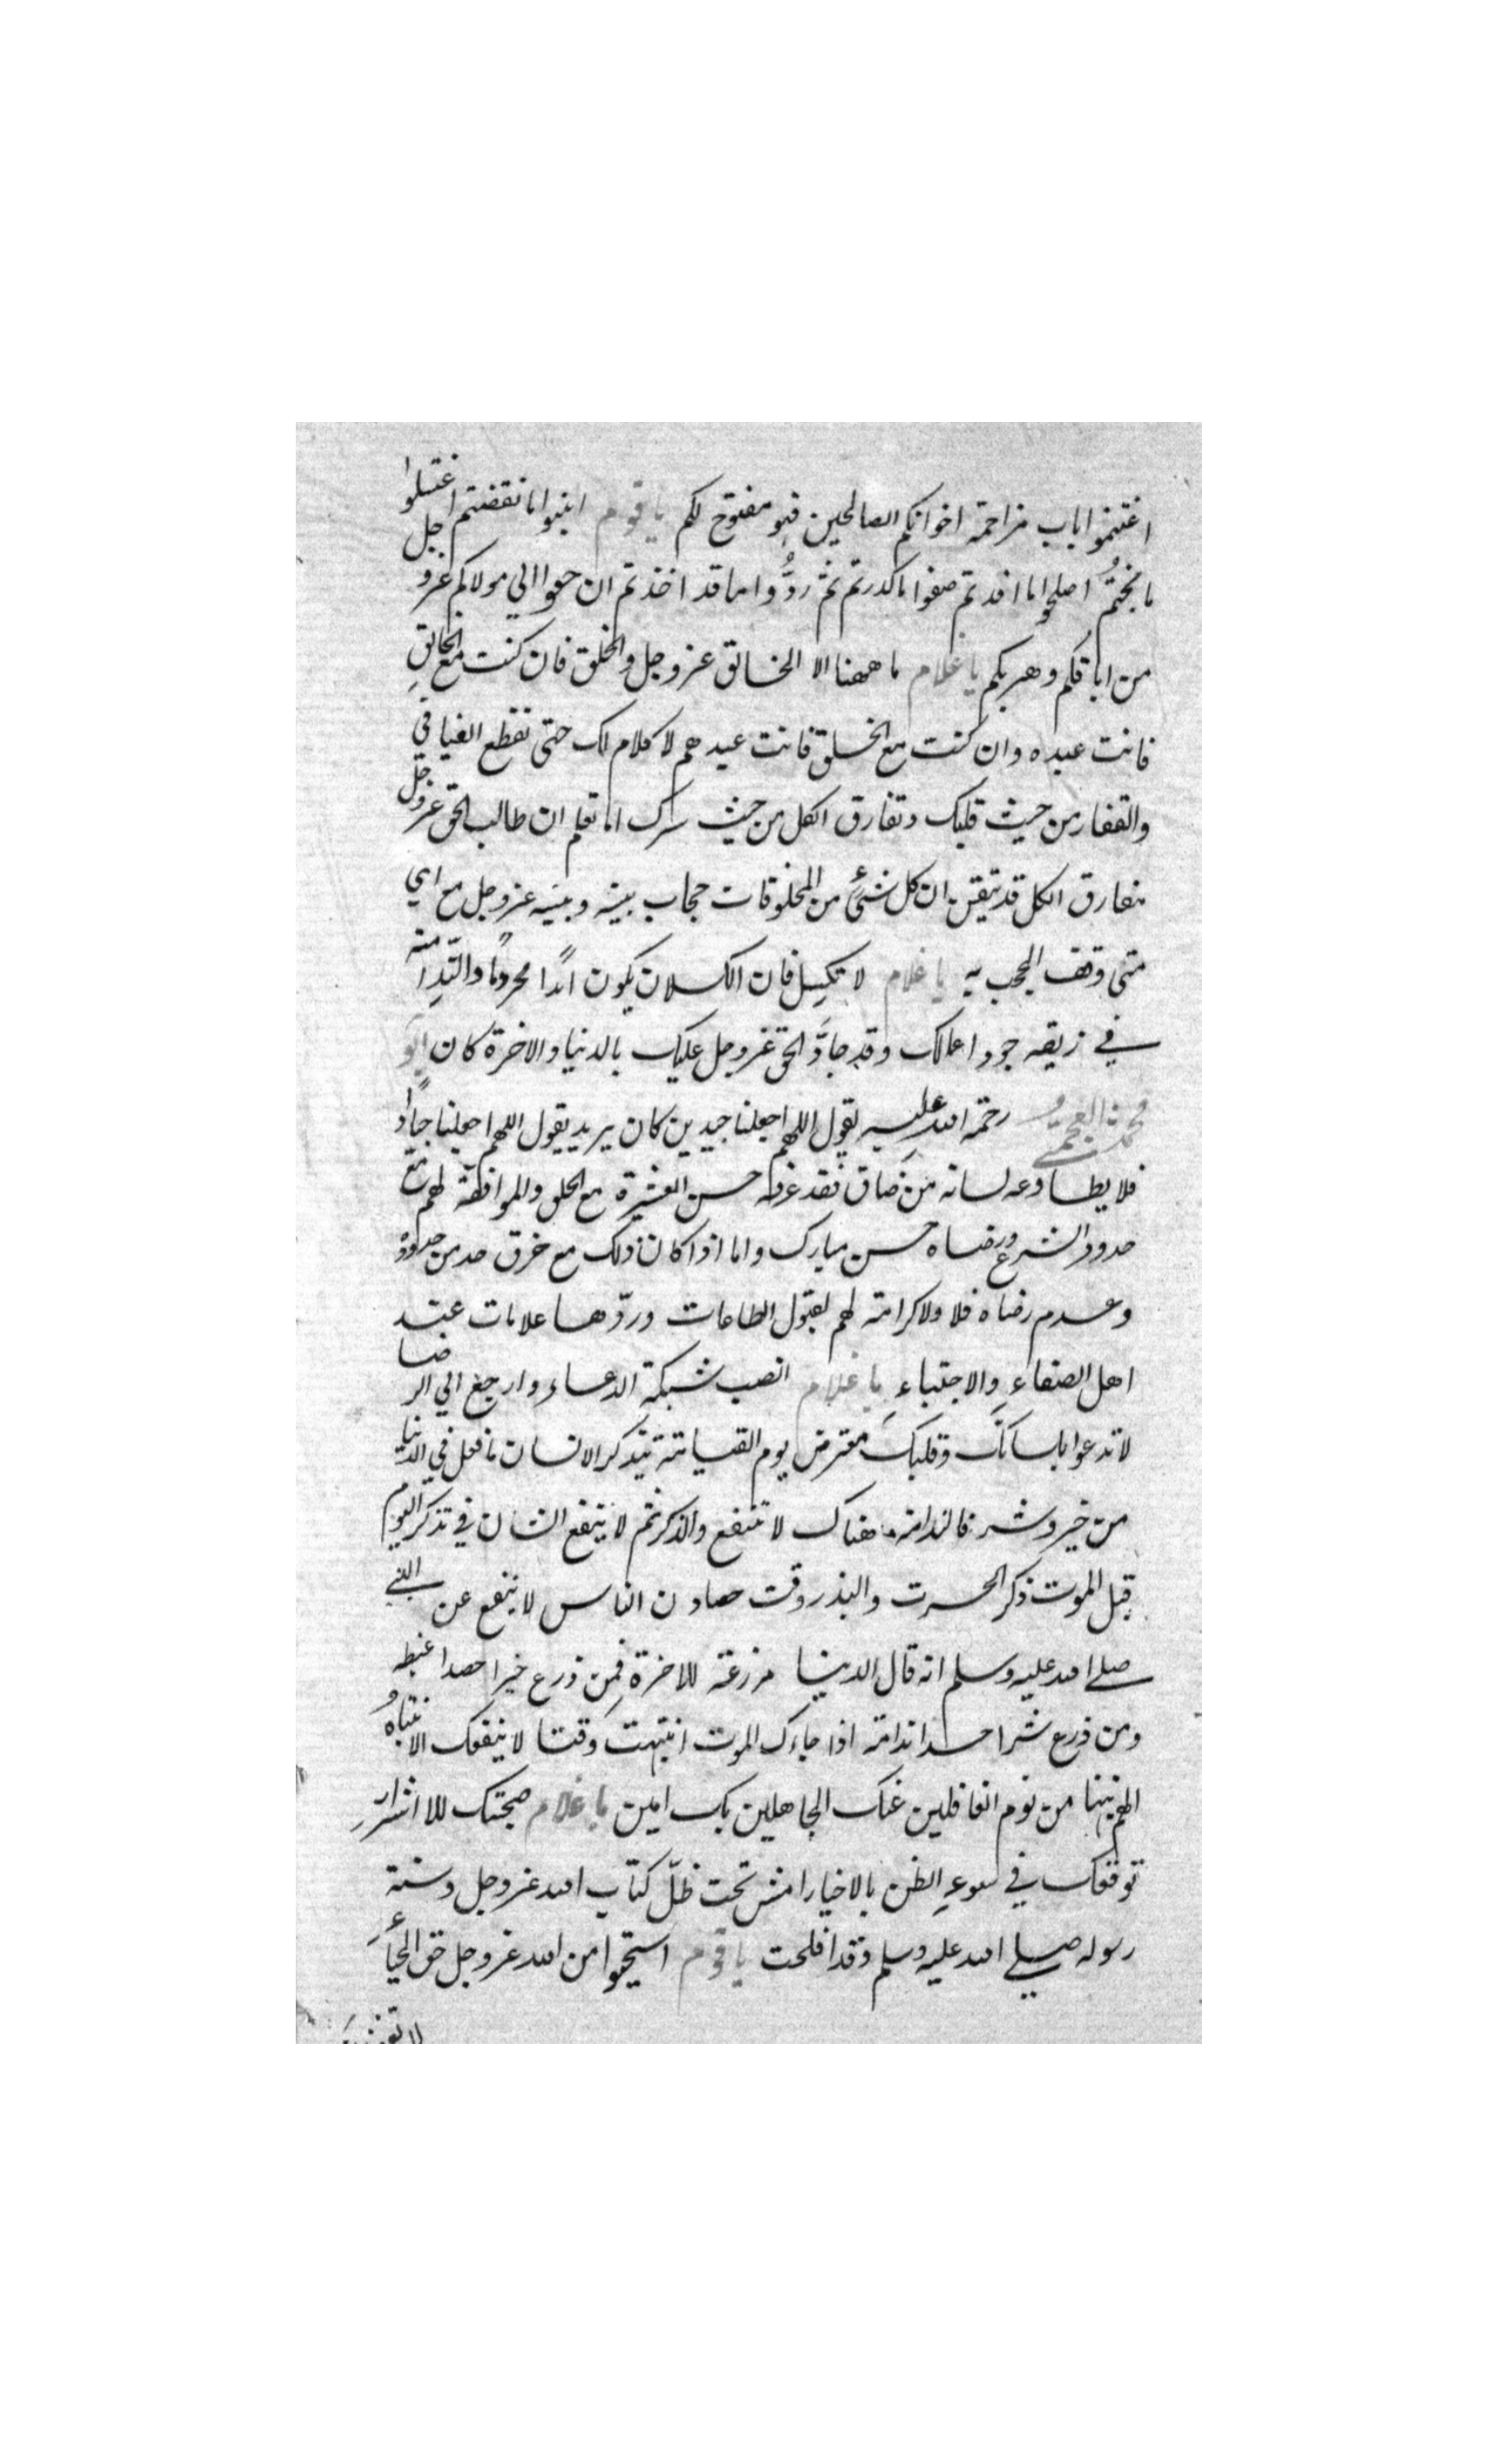 اغتنموا باب مزاحمة اخوانكم الصالحين فهو مفتوح لكم يا قوم ابنوا ما نقضتم اغسلوا
ما نجستم اصلحوا ما افسدتم صفوا ما كدرتم ثم ردُّوا ما قد اخذتم ارجعوا الي مولاكم عزو جل
من اباقكم وهربكم يا غلام ما ههنا الا الخالق عزوجل والخلق فان كنت مع الخالقِ
فانت عبده وان كنت مع الخلق فانت عبدهم لا كلام لك حتى تقطع الفيافي
والقفار من حيث قلبك وتفارق الكل من حيث سرك اما تعلم ان طالب الحق عزوجلّ
مفارق الكل قد تيقن ان كل شئ من المخلوقات حجاب بينه وبينه عزوجل مع اي
متى وقف احجب به يا غلام لا تكسل فان الكسلان يكون ابدًا محرومًا والنَّدامة
في زيقه جود اعمالك وقد جادَ الحق عزوجل عليك بالدنيا والاخرة كان ابو
محمد العجمي رحمة الله عليه يقول اللهم اجعلنا جيدين كان يريد يقول اللهم اجعلنا جيادًا
فلا يطاوعه لسانه من ضاق فقد عرف حسن العشرة مع الخلق والموافقة لهم مع
حدود الشرع ورضاه حسن مبارك واما اذا كان ذلك مع خرق حد من حدوده
وعدم رضاه فلا ولا كرامة لهم لقبول الطاعات وردّها علامات عند
اهل الصفاءِ والاجتباءِ يا غلام انصب شبكة الدعاء وارجع الي الرضا
لا تدعوا بلسانك وقلبك معترض يوم القيامة يتذكر الانسان ما فعل في الدنيا
من خير وشر فالندامة هناك لا تنفع والذكر ثم لا ينفع الشان في تذكر اليوم
قبل الموت ذكر الحرث والبذر وقت حصاد الناس لا ينفع عن النبي
صلى الله عليه وسلم انه قال الدنيا مزرعة للاخرة فمن زرع خيرا حصد غبطة
ومن زرع شرا حصد ندامة اذا جاءك الموت انتبهت وقتا لا ينفعك الانتباهُ
اللهم نبهنا من نوم الغافلين عنك الجاهلين بك امين يا غلام صحبتك للاشرارِ
توقعك في سوءِ الظن بالاخيار امش تحت ظلّ كتاب الله عزوجل وسنة
رسوله صلى الله عليه وسلم وقد افلحت يا قوم استحيوا من الله عزوجل حق الحياءِ